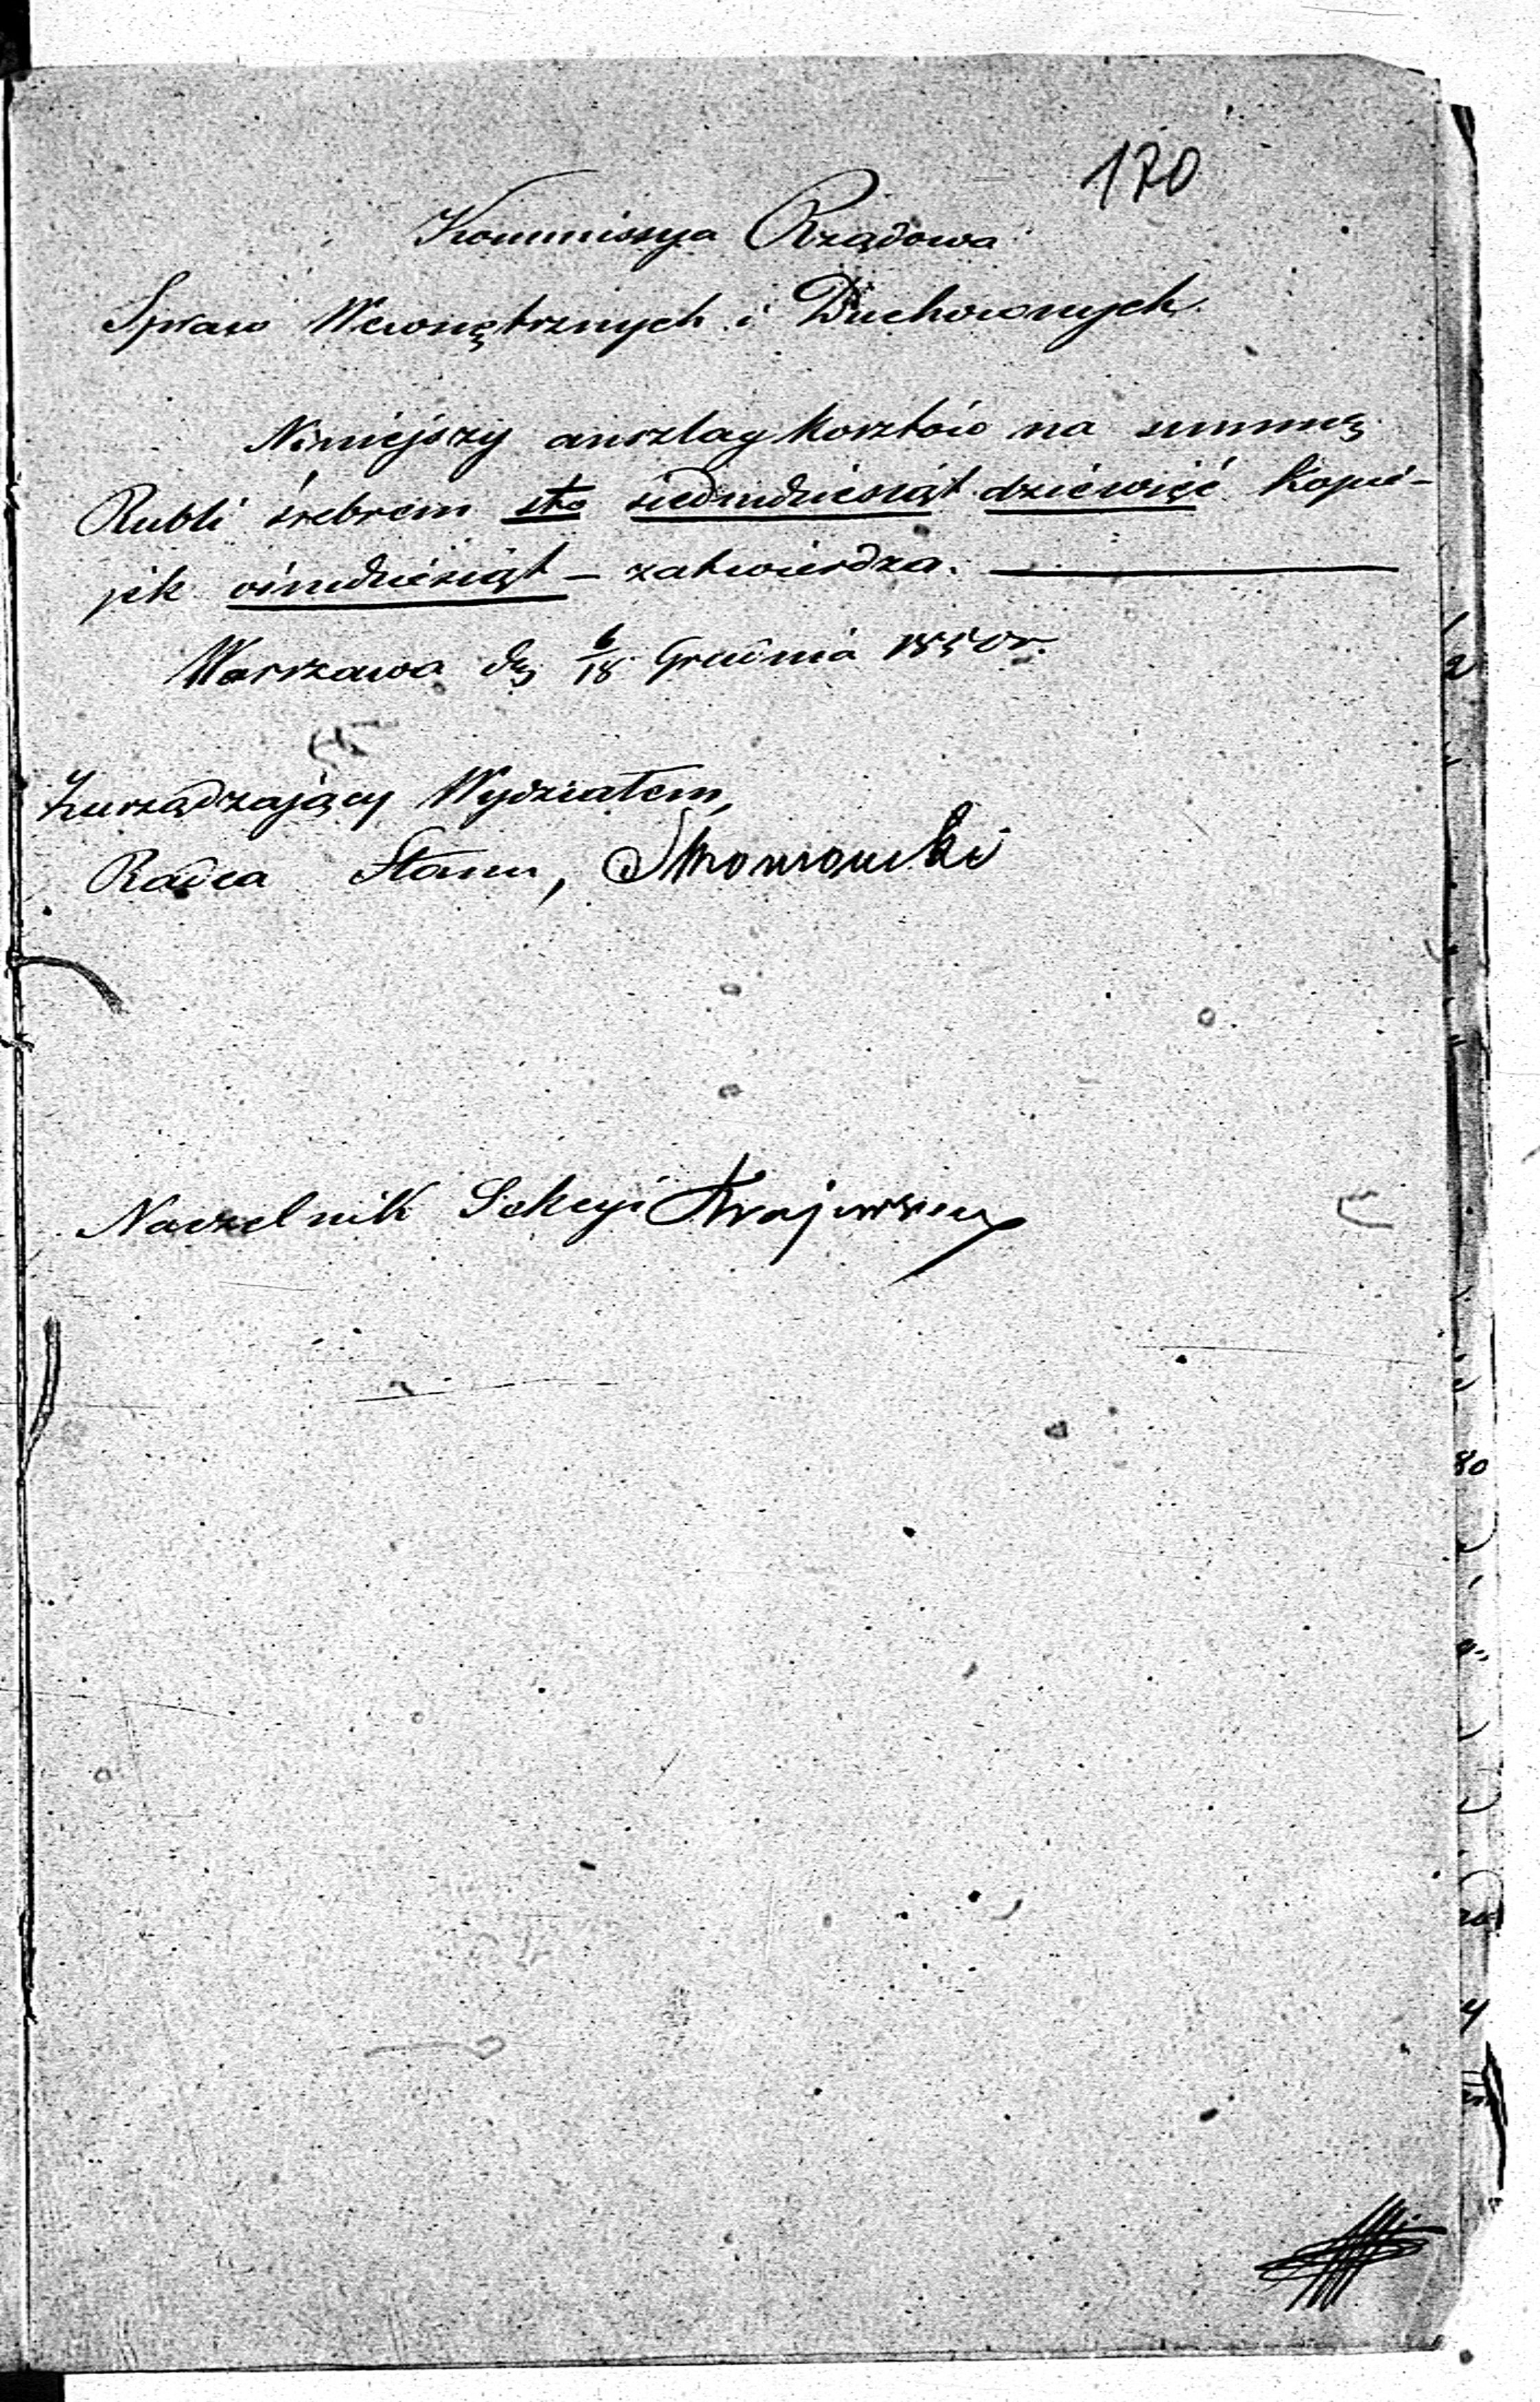 170
Kommissya Rządowa
Spraw Wewnętrznych i Duchownych.
Niniejszy anszlag kosztów na summę
Rubli śrebrem sto siedmdziesiąt dziéwięć kopié-
jek ośmdziesiąt – zatwierdza.
Warszawa dę 6/18 Grudnia 1850 r.
Zarządzający Wydziałem,
Radca Stanu,
Naczelnik Sekcyi Krajewski
80